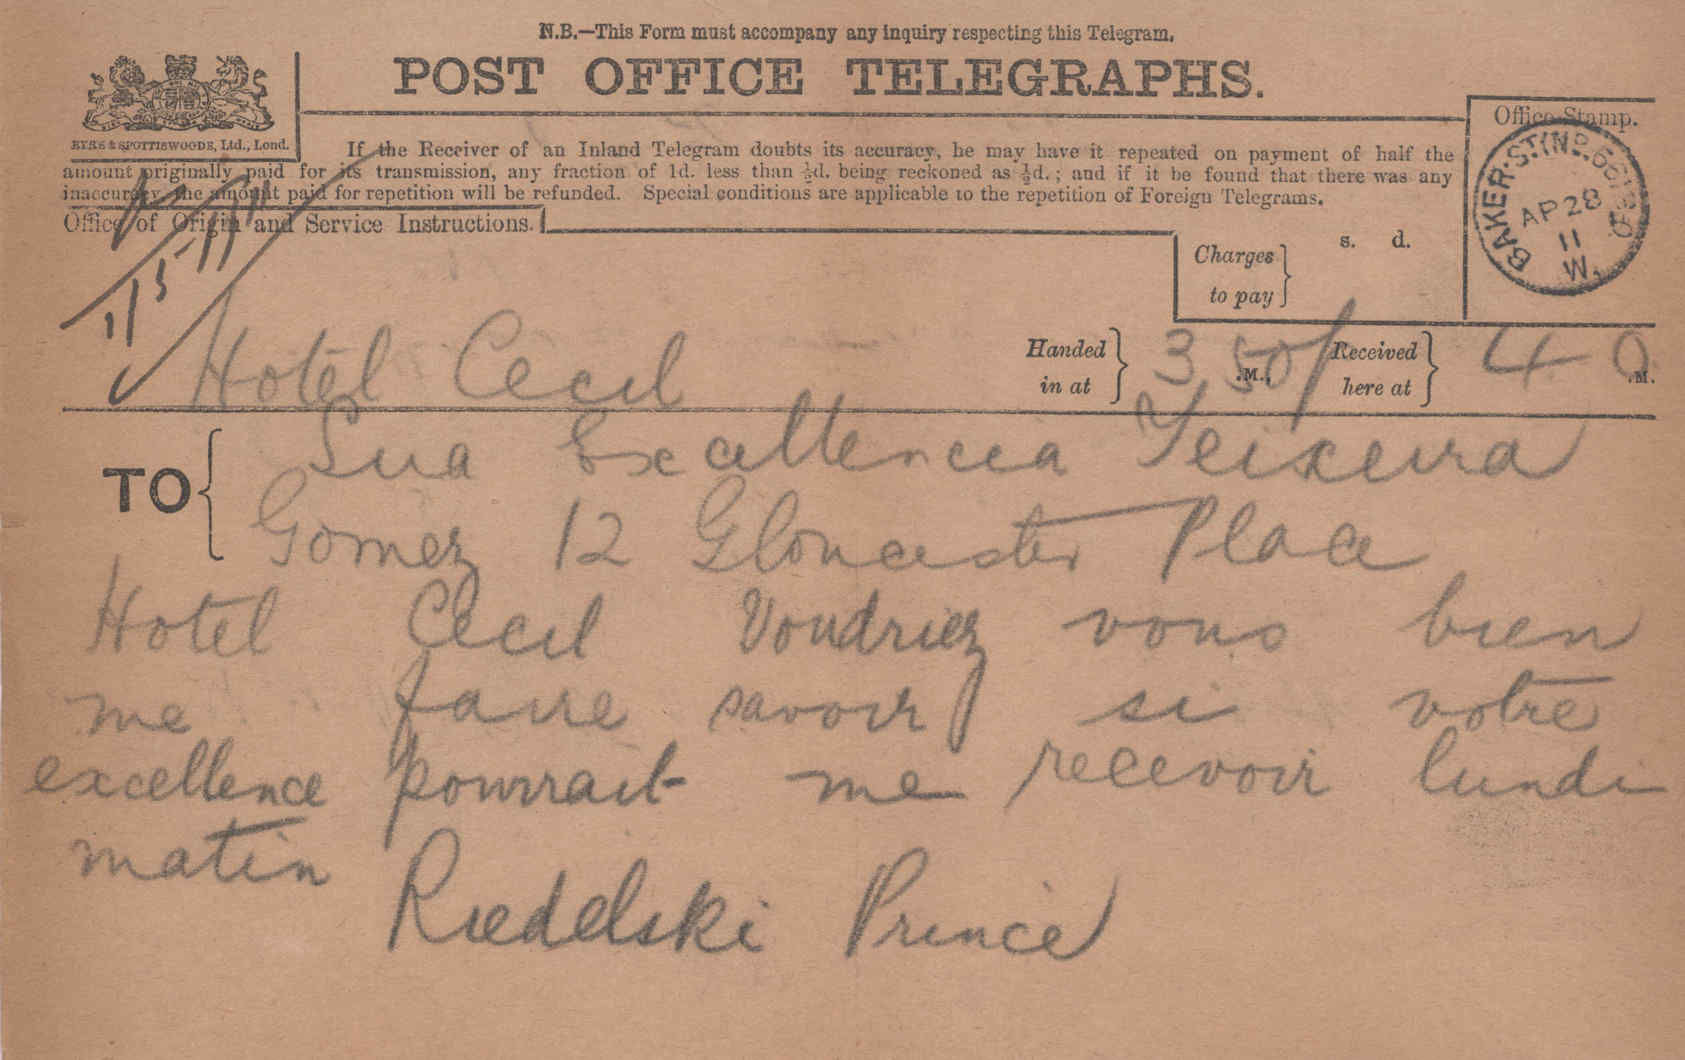 N.B.—This Form must accompany any inquiry respecting this Telegram.
POST OFFICE TELEGRAPHS.
EYRE & SPOTTISWOODE, Ltd., Lond.
If the Receiver of an Inland Telegram doubts its accuracy, he may have it repeated on payment of half the
amount originally paid for its transmission, any fraction of 1d. less than ½d. being reckoned as ½d.; and if it be found that there was any
inaccuracy, the amount paid for repetition will be refunded. Special conditions are applicable to the repetition of Foreign Telegrams.
Office of Origin and Service Instructions.
Charges to pay
s. d.
Office Stamp.
BAKER·ST
AP 28
11
W.
1/5-11
Hotel Cecil
Handed in at 3 50 .M.,
Received here at 4 0 .M.
TO
Sua Excellencia Teixeira
Gomez 12 Gloucester Place
Hotel Cecil Voudriez vous bien
me faire savoir si votre
excellence pourrait me recevoir lundi
matin
Riedelski Prince